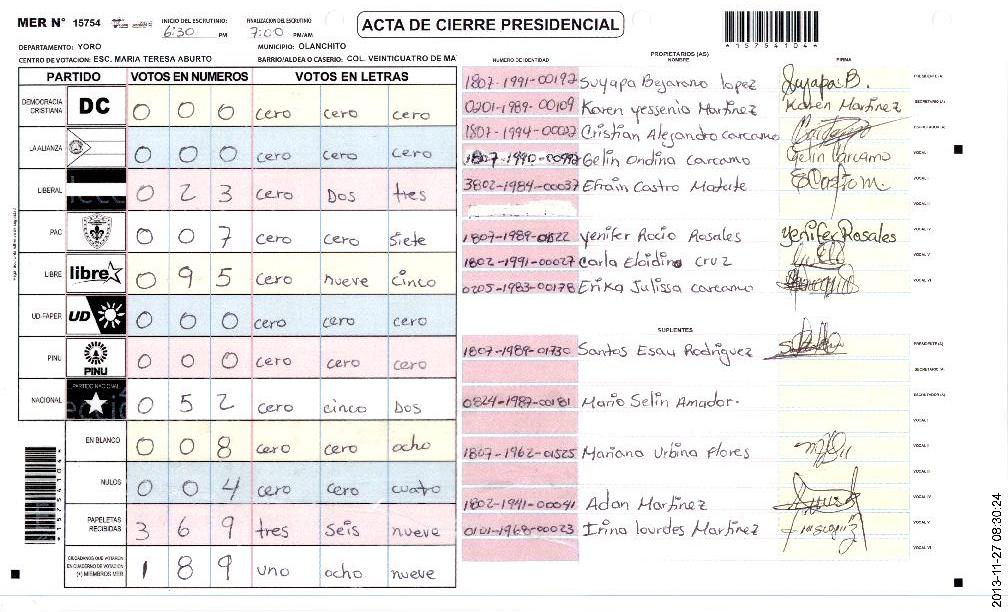 MER N° 15754 INICIO DEL ESCRUTINIO 6:30 PM FINALIZACION DEL ESCRUTINIO 7:00 PM/AM ACTA DE CIERRE PRESIDENCIAL
*15754104*
DEPARTAMENTO: YORO MUNICIPIO: OLANCHITO
CENTRO DE VOTACION: ESC. MARIA TERESA ABURTO BARRIO/ALDEA O CASERIO: COL. VEINTICUATRO DE MA
PARTIDO VOTOS EN NUMEROS VOTOS EN LETRAS
DEMOCRACIA CRISTIANA DC 0 0 0 cero cero cero
LA ALIANZA 0 0 0 cero cero cero
LIBERAL 0 2 3 cero Dos tres
PAC 0 0 7 cero cero siete
LIBRE libre 0 9 5 cero nueve cinco
UD-FAPER UD 0 0 0 cero cero cero
PINU PINU 0 0 0 cero cero cero
NACIONAL PARTIDO NACIONAL 0 5 2 cero cinco Dos
EN BLANCO 0 0 8 cero cero ocho
NULOS 0 0 4 cero cero cuatro
PAPELETAS RECIBIDAS 3 6 9 tres seis nueve
CIUDADANOS QUE VOTARON EN CUADERNO DE VOTACION (+) MIEMBROS MER 1 8 9 uno ocho nueve
*15754104*
NUMERO DE IDENTIDAD PROPIETARIOS (AS) NOMBRE FIRMA
1807-1991-00192 Suyapa Bejarano lopez Suyapa B. PRESIDENTE(A)
0201-1989-00109 Karen yessenia Martinez Karen Martinez SECRETARIO (A)
1807-1994-00022 Cristian Alejandro carcamo ESCRUTADOR (A)
Gelin ondina carcamo Gelin Carcamo VOCAL I
3802-1984-00037 Efrain Castro Matute ECastro M. VOCAL II
VOCAL III
1807-1989-01522 yenifer Rocio Rosales yenifer Rosales VOCAL IV
1802-1991-00027 Carla Eloidina cruz VOCAL V
0205-1983-00178 Erika Julissa carcamo VOCAL VI
SUPLENTES
1807-1989-01730 Santos Esau Rodriguez PRESIDENTE(A)
SECRETARIO (A)
0824-1987-00181 Mario Selin Amador. ESCRUTADOR (A)
VOCAL I
1807-1962-01525 Mariana Urbina flores VOCAL II
VOCAL III
1802-1991-00041 Adan Martinez VOCAL IV
0101-1968-00023 Irina lourdes Martinez VOCAL V
VOCAL VI
2013-11-27 08:30:24